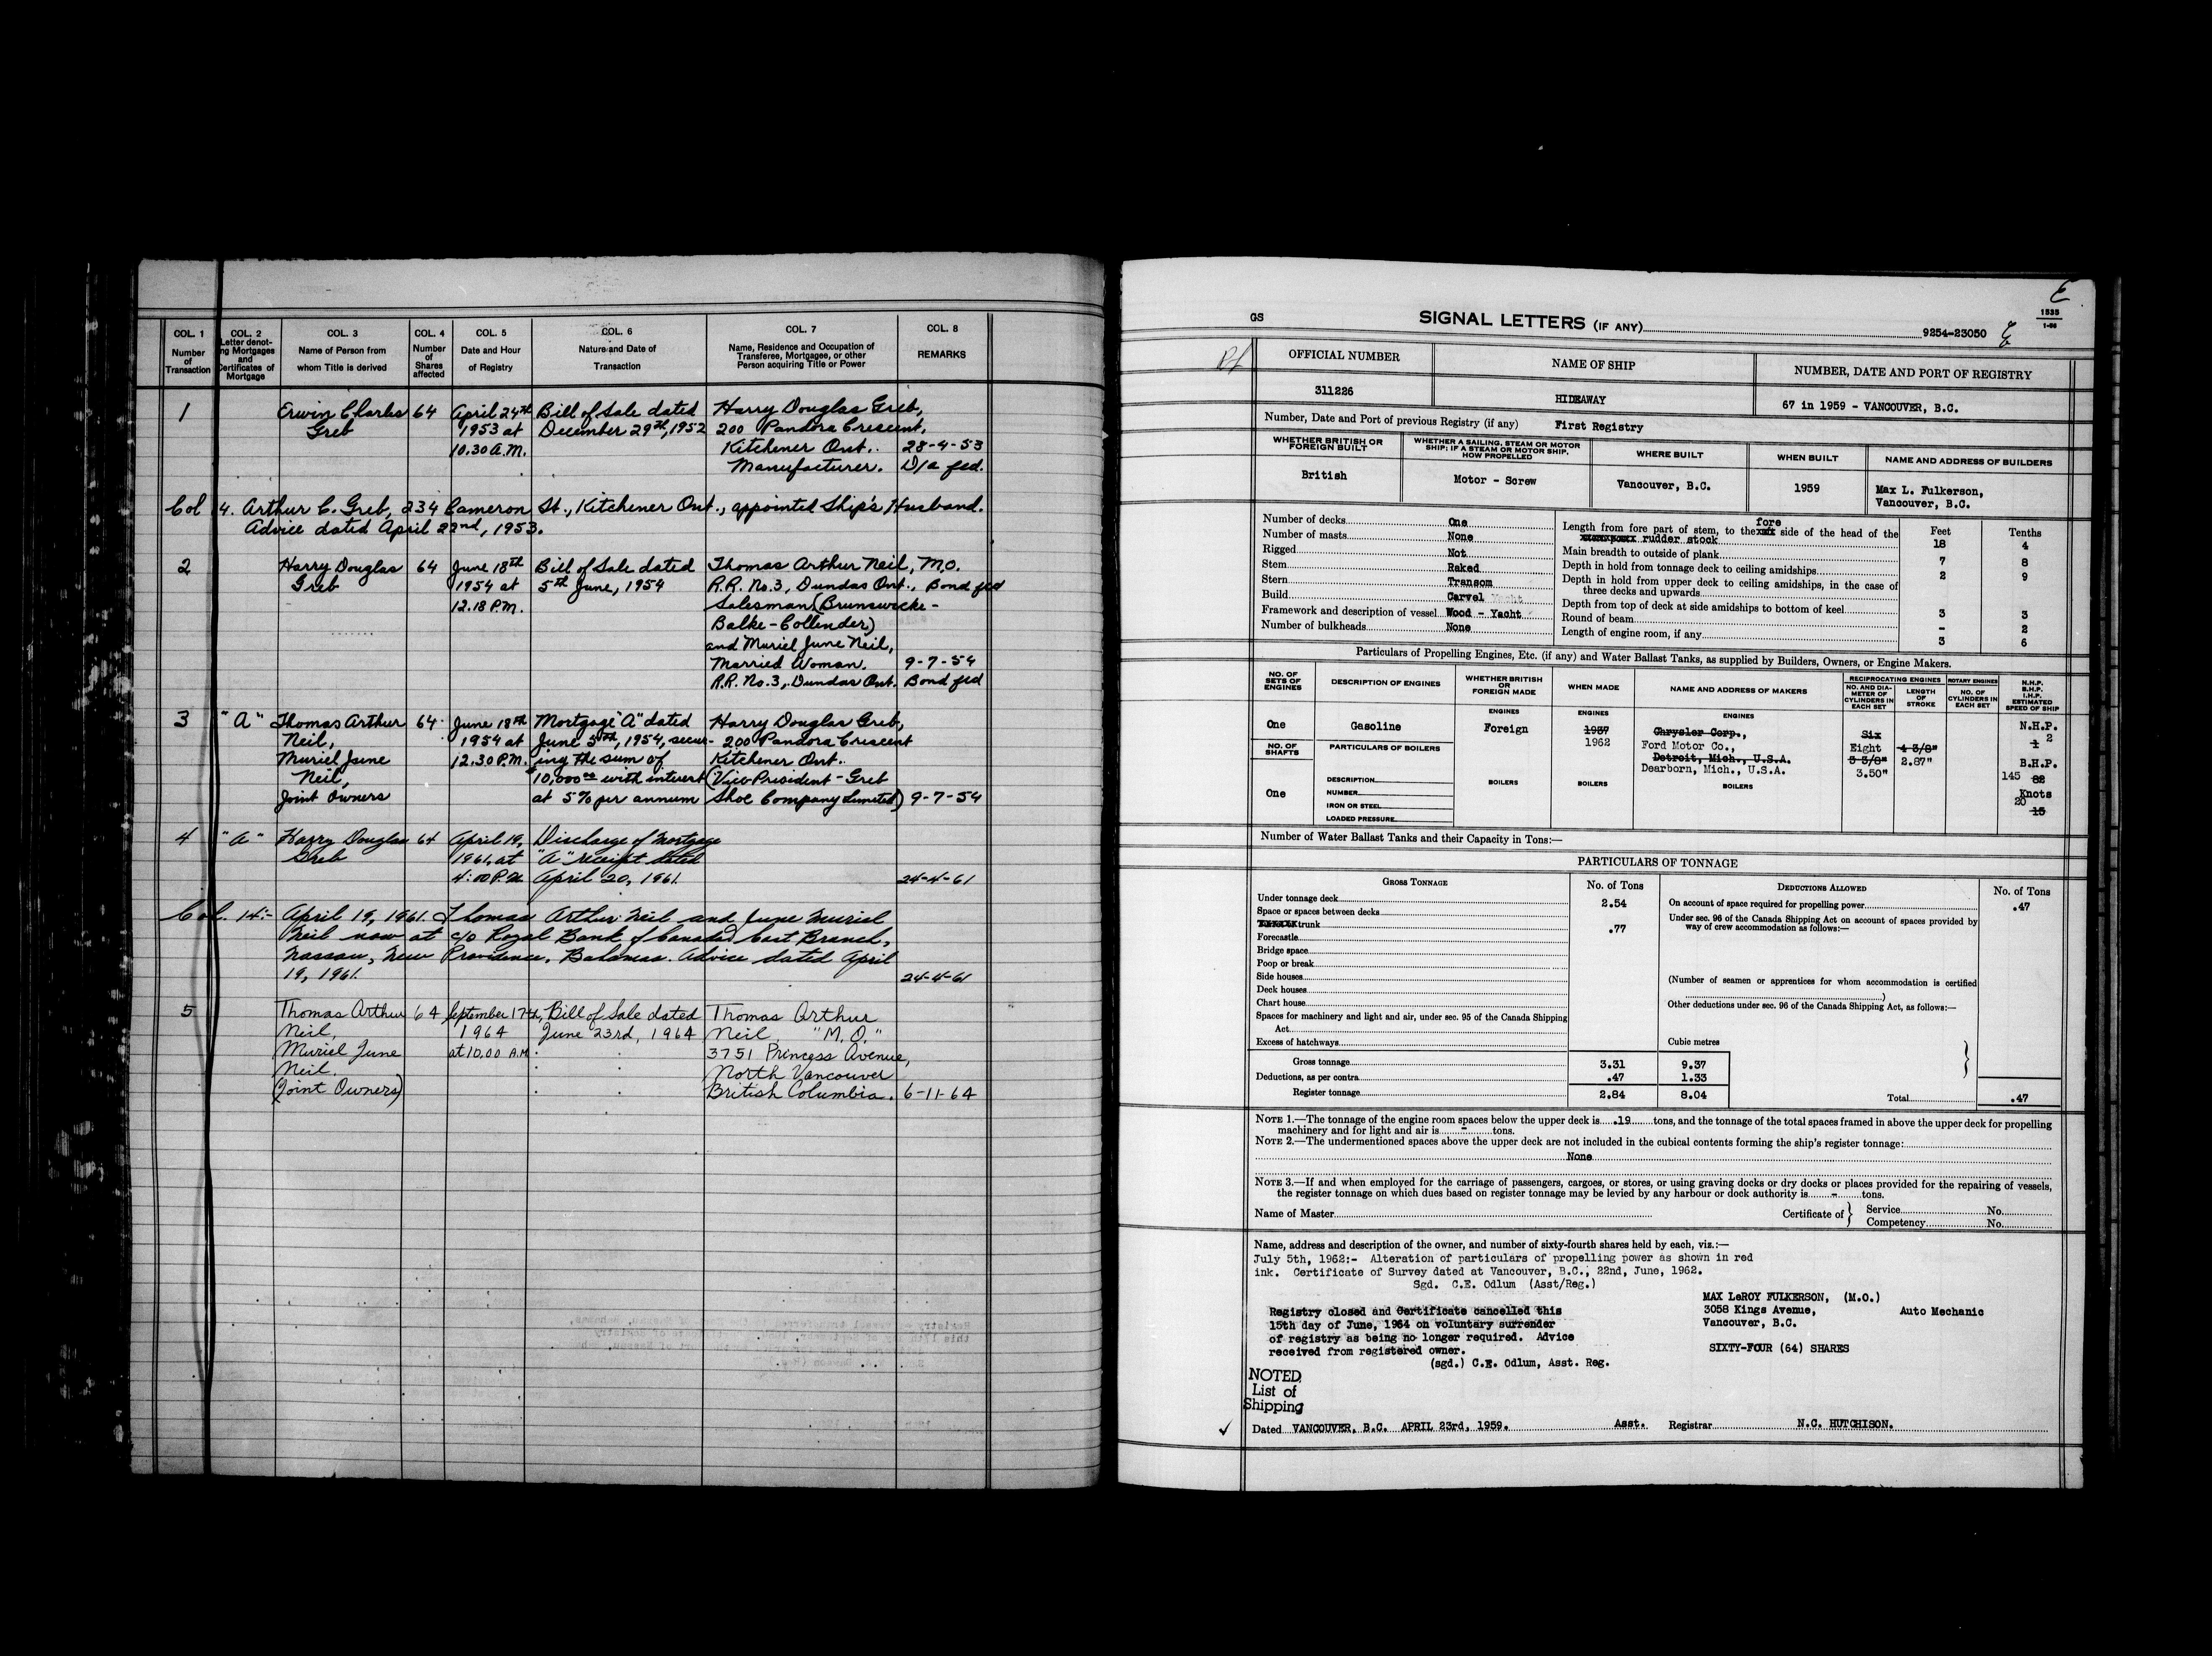 COL. 1 Number of Transaction
COL. 2 Letter denoting Mortgages and Certificates of Mortgage
COL. 3 Name of Person from whom Title is derived
COL. 4 Number of Shares affected
COL. 5 Date and Hour of Registry
COL. 6 Nature and Date of Transaction
COL. 7 Name, Residence and Occupation of Transferee, Mortgagee, or other Person acquiring Title or Power
COL. 8 REMARKS
1 Erwin Charles 64 April 24th Bill of Sale dated Harry Douglas Greb,
Greb 1953 at December 29th, 1952 200 Pandora Crescent,
10.30 A.M. Kitchener Ont.. 28-4-53
Manufacturer. D/a fwd.
Col 4. Arthur C. Greb, 234 Cameron St., Kitchener Ont., appointed Ship's Husband.
Advice dated April 22nd, 1953.
2 Harry Douglas 64 June 18th Bill of Sale dated Thomas Arthur Neil, M.O.
Greb 1954 at 5th June, 1954 R.R. No.3, Dundas Ont., Bond fwd
12.18 P.M. Salesman (Brunswicke-
Balke-Collender)
and Muriel June Neil,
Married Woman. 9-7-54
R.R. No.3, Dundas Ont. Bond fwd
3 "A" Thomas Arthur 64 June 18th Mortgage "A" dated Harry Douglas Greb,
Neil, 1954 at June 5th, 1954, secur- 200 Pandora Crescent
Muriel June 12.30 P.M. ing the sum of Kitchener Ont..
Neil, $10,000.00 with interest (Vice-President-Greb
Joint Owners at 5% per annum Shoe Company Limited) 9-7-54
4 "A" Harry Douglas 64 April 19, Discharge of Mortgage
Greb 1961, at "A" receipt dated
4:00 P.M. April 20, 1961. 24-4-61
Col. 14:- April 19, 1961. Thomas Arthur Neil and June Muriel
Neil now at c/o Royal Bank of Canada, East Branch,
Nassau, New Providence, Bahamas. Advice dated April
19, 1961. 24-4-61
5 Thomas Arthur 64 September 17th, Bill of Sale dated Thomas Arthur
Neil, 1964 June 23rd, 1964 Neil, "M.O."
Muriel June at 10.00 A.M. 3751 Princess Avenue,
Neil. North Vancouver
(Joint Owners) British Columbia. 6-11-64
GS SIGNAL LETTERS (IF ANY) 9254-23050
1535
1-56
OFFICIAL NUMBER NAME OF SHIP NUMBER, DATE AND PORT OF REGISTRY
311226 HIDEAWAY 67 in 1959 - VANCOUVER, B.C.
Number, Date and Port of previous Registry (if any) First Registry
WHETHER BRITISH OR FOREIGN BUILT
WHETHER A SAILING, STEAM OR MOTOR SHIP; IF A STEAM OR MOTOR SHIP, HOW PROPELLED
WHERE BUILT WHEN BUILT NAME AND ADDRESS OF BUILDERS
British Motor - Screw Vancouver, B.C. 1959 Max L. Fulkerson,
Vancouver, B.C.
Number of decks One
Number of masts None
Rigged Not
Stem Raked
Stern Transom
Build Carvel
Framework and description of vessel Wood - Yacht
Number of bulkheads None
Feet Tenths
Length from fore part of stem, to the fore side of the head of the rudder stock 18 4
Main breadth to outside of plank 7 8
Depth in hold from tonnage deck to ceiling amidships 2 9
Depth in hold from upper deck to ceiling amidships, in the case of three decks and upwards
Depth from top of deck at side amidships to bottom of keel 3 3
Round of beam - 2
Length of engine room, if any 3 6
Particulars of Propelling Engines, Etc. (if any) and Water Ballast Tanks, as supplied by Builders, Owners, or Engine Makers.
NO. OF SETS OF ENGINES
DESCRIPTION OF ENGINES
WHETHER BRITISH OR FOREIGN MADE
WHEN MADE
NAME AND ADDRESS OF MAKERS
RECIPROCATING ENGINES
NO. AND DIAMETER OF CYLINDERS IN EACH SET
LENGTH OF STROKE
ROTARY ENGINES
NO. OF CYLINDERS IN EACH SET
N.H.P.
B.H.P.
I.H.P.
ESTIMATED SPEED OF SHIP
ENGINES ENGINES ENGINES
One Gasoline Foreign 1937 Chrysler Corp., Six N.H.P.
1962 Ford Motor Co., Eight 4 3/8" 1 2
Detroit, Mich., U.S.A. 3 3/8" 2.87" B.H.P.
Dearborn, Mich., U.S.A. 3.50" 145 82
NO. OF SHAFTS PARTICULARS OF BOILERS
BOILERS BOILERS BOILERS
One
DESCRIPTION
NUMBER
IRON OR STEEL
LOADED PRESSURE
Knots
20 15
Number of Water Ballast Tanks and their Capacity in Tons:—
PARTICULARS OF TONNAGE
GROSS TONNAGE No. of Tons DEDUCTIONS ALLOWED No. of Tons
Under tonnage deck 2.54
Space or spaces between decks
trunk .77
Forecastle
Bridge space
Poop or break
Side houses
Deck houses
Chart house
Spaces for machinery and light and air, under sec. 95 of the Canada Shipping Act
Excess of hatchways Cubic metres
Gross tonnage 3.31 9.37
Deductions, as per contra .47 1.33
Register tonnage 2.84 8.04
On account of space required for propelling power .47
Under sec. 96 of the Canada Shipping Act on account of spaces provided by way of crew accommodation as follows:—
(Number of seamen or apprentices for whom accommodation is certified )
Other deductions under sec. 96 of the Canada Shipping Act, as follows:—
Total .47
NOTE 1.—The tonnage of the engine room spaces below the upper deck is .19 tons, and the tonnage of the total spaces framed in above the upper deck for propelling
machinery and for light and air is - tons.
NOTE 2.—The undermentioned spaces above the upper deck are not included in the cubical contents forming the ship's register tonnage:
None
NOTE 3.—If and when employed for the carriage of passengers, cargoes, or stores, or using graving docks or dry docks or places provided for the repairing of vessels,
the register tonnage on which dues based on register tonnage may be levied by any harbour or dock authority is - tons.
Name of Master Certificate of { Service No.
Competency No.
Name, address and description of the owner, and number of sixty-fourth shares held by each, viz.:—
July 5th, 1962:- Alteration of particulars of propelling power as shown in red
ink. Certificate of Survey dated at Vancouver, B.C., 22nd, June, 1962.
Sgd. C.E. Odlum (Asst/Reg.)
MAX LeROY FULKERSON, (M.O.)
3058 Kings Avenue, Auto Mechanic
Vancouver, B.C.
SIXTY-FOUR (64) SHARES
Registry closed and Certificate cancelled this
15th day of June, 1964 on voluntary surrender
of registry as being no longer required. Advice
received from registered owner.
(sgd.) C.E. Odlum, Asst. Reg.
NOTED
List of
Shipping
Dated VANCOUVER, B.C. APRIL 23rd, 1959. Asst. Registrar N.C. HUTCHISON.